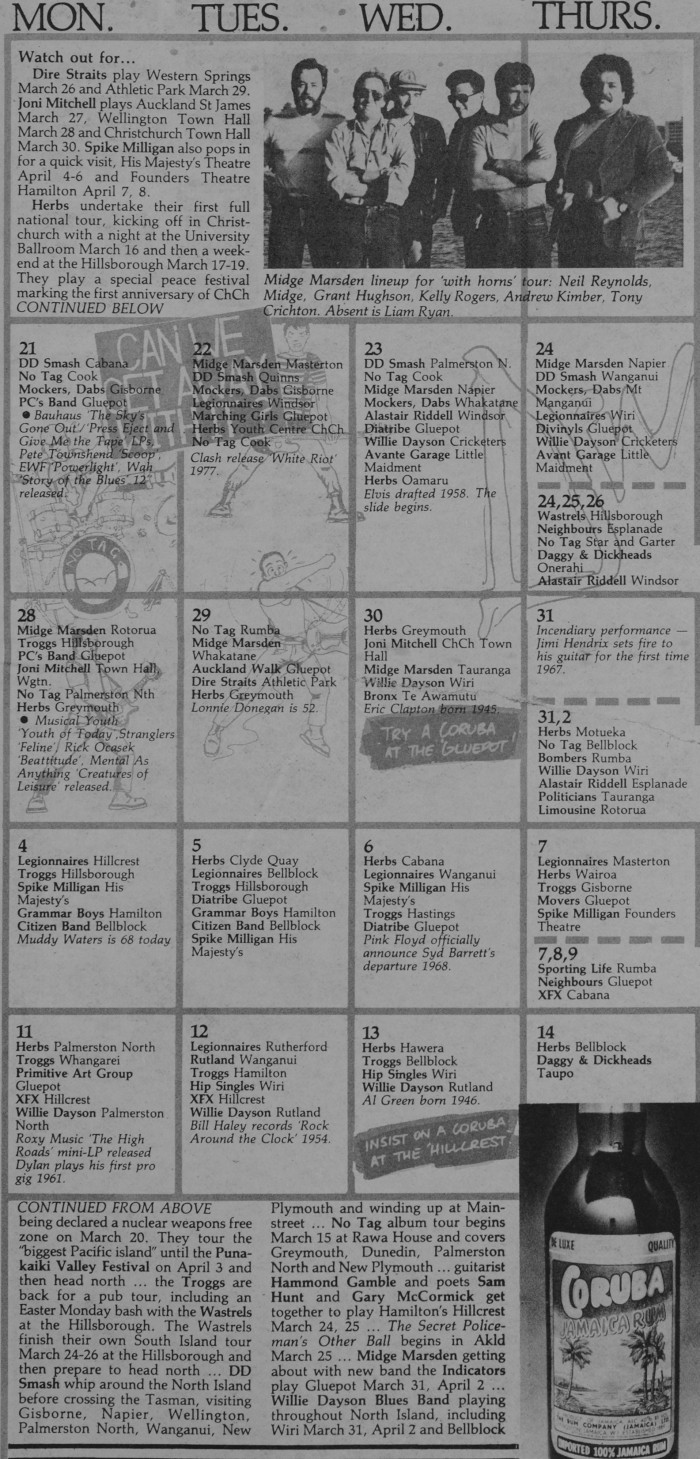 MON. TUES. WED. THURS.
Watch out for...
Dire Straits play Western Springs
March 26 and Athletic Park March 29.
Joni Mitchell plays Auckland St James
March 27, Wellington Town Hall
March 28 and Christchurch Town Hall
March 30. Spike Milligan also pops in
for a quick visit, His Majesty's Theatre
April 4-6 and Founders Theatre
Hamilton April 7, 8.
Herbs undertake their first full
national tour, kicking off in Christ-
church with a night at the University
Ballroom March 16 and then a week-
end at the Hillsborough March 17-19.
They play a special peace festival
marking the first anniversary of ChCh
CONTINUED BELOW
Midge Marsden lineup for 'with horns' tour: Neil Reynolds,
Midge, Grant Hughson, Kelly Rogers, Andrew Kimber, Tony
Crichton. Absent is Liam Ryan.
21
DD Smash Cabana
No Tag Cook
Mockers, Dabs Gisborne
PC's Band Gluepot
● Bauhaus 'The Sky's
Gone Out'/'Press Eject and
Give Me the Tape' LPs,
Pete Townshend 'Scoop',
EWF 'Powerlight', Wah
'Story of the Blues' 12"
released.
NO TAG
CAN WE
22
Midge Marsden Masterton
DD Smash Quinns
Mockers, Dabs Gisborne
Legionnaires Windsor
Marching Girls Gluepot
Herbs Youth Centre ChCh
No Tag Cook
Clash release 'White Riot'
1977.
23
DD Smash Palmerston N.
No Tag Cook
Midge Marsden Napier
Mockers, Dabs Whakatane
Alastair Riddell Windsor
Diatribe Gluepot
Willie Dayson Cricketers
Avante Garage Little
Maidment
Herbs Oamaru
Elvis drafted 1958. The
slide begins.
24
Midge Marsden Napier
DD Smash Wanganui
Mockers, Dabs Mt
Manganui
Legionnaires Wiri
Divinyls Gluepot
Willie Dayson Cricketers
Avant Garage Little
Maidment
24,25,26
Wastrels Hillsborough
Neighbours Esplanade
No Tag Star and Garter
Daggy & Dickheads
Onerahi
Alastair Riddell Windsor
28
Midge Marsden Rotorua
Troggs Hillsborough
PC's Band Gluepot
Joni Mitchell Town Hall,
Wgtn.
No Tag Palmerston Nth
Herbs Greymouth
● Musical Youth
'Youth of Today', Stranglers
'Feline', Rick Ocasek
'Beattitude', Mental As
Anything 'Creatures of
Leisure' released.
29
No Tag Rumba
Midge Marsden
Whakatane
Auckland Walk Gluepot
Dire Straits Athletic Park
Herbs Greymouth
Lonnie Donegan is 52.
30
Herbs Greymouth
Joni Mitchell ChCh Town
Hall
Midge Marsden Tauranga
Willie Dayson Wiri
Bronx Te Awamutu
Eric Clapton born 1945.
TRY A CORUBA
AT THE GLUEPOT!
31
Incendiary performance —
Jimi Hendrix sets fire to
his guitar for the first time
1967.
31,2
Herbs Motueka
No Tag Bellblock
Bombers Rumba
Willie Dayson Wiri
Alastair Riddell Esplanade
Politicians Tauranga
Limousine Rotorua
4
Legionnaires Hillcrest
Troggs Hillsborough
Spike Milligan His
Majesty's
Grammar Boys Hamilton
Citizen Band Bellblock
Muddy Waters is 68 today
5
Herbs Clyde Quay
Legionnaires Bellblock
Troggs Hillsborough
Diatribe Gluepot
Grammar Boys Hamilton
Citizen Band Bellblock
Spike Milligan His
Majesty's
6
Herbs Cabana
Legionnaires Wanganui
Spike Milligan His
Majesty's
Troggs Hastings
Diatribe Gluepot
Pink Floyd officially
announce Syd Barrett's
departure 1968.
7
Legionnaires Masterton
Herbs Wairoa
Troggs Gisborne
Movers Gluepot
Spike Milligan Founders
Theatre
7,8,9
Sporting Life Rumba
Neighbours Gluepot
XFX Cabana
11
Herbs Palmerston North
Troggs Whangarei
Primitive Art Group
Gluepot
XFX Hillcrest
Willie Dayson Palmerston
North
Roxy Music 'The High
Roads' mini-LP released
Dylan plays his first pro
gig 1961.
12
Legionnaires Rutherford
Rutland Wanganui
Troggs Hamilton
Hip Singles Wiri
XFX Hillcrest
Willie Dayson Rutland
Bill Haley records 'Rock
Around the Clock' 1954.
13
Herbs Hawera
Troggs Bellblock
Hip Singles Wiri
Willie Dayson Rutland
Al Green born 1946.
INSIST ON A CORUBA
AT THE 'HILLCREST'
14
Herbs Bellblock
Daggy & Dickheads
Taupo
CONTINUED FROM ABOVE
being declared a nuclear weapons free
zone on March 20. They tour the
"biggest Pacific island" until the Puna-
kaiki Valley Festival on April 3 and
then head north ... the Troggs are
back for a pub tour, including an
Easter Monday bash with the Wastrels
at the Hillsborough. The Wastrels
finish their own South Island tour
March 24-26 at the Hillsborough and
then prepare to head north ... DD
Smash whip around the North Island
before crossing the Tasman, visiting
Gisborne, Napier, Wellington,
Palmerston North, Wanganui, New
Plymouth and winding up at Main-
street ... No Tag album tour begins
March 15 at Rawa House and covers
Greymouth, Dunedin, Palmerston
North and New Plymouth ... guitarist
Hammond Gamble and poets Sam
Hunt and Gary McCormick get
together to play Hamilton's Hillcrest
March 24, 25 ... The Secret Police-
man's Other Ball begins in Akld
March 25 ... Midge Marsden getting
about with new band the Indicators
play Gluepot March 31, April 2 ...
Willie Dayson Blues Band playing
throughout North Island, including
Wiri March 31, April 2 and Bellblock
DE LUXE QUALITY
CORUBA
JAMAICA RUM
THE RUM COMPANY (JAMAICA) LTD
IMPORTED 100% JAMAICA RUM